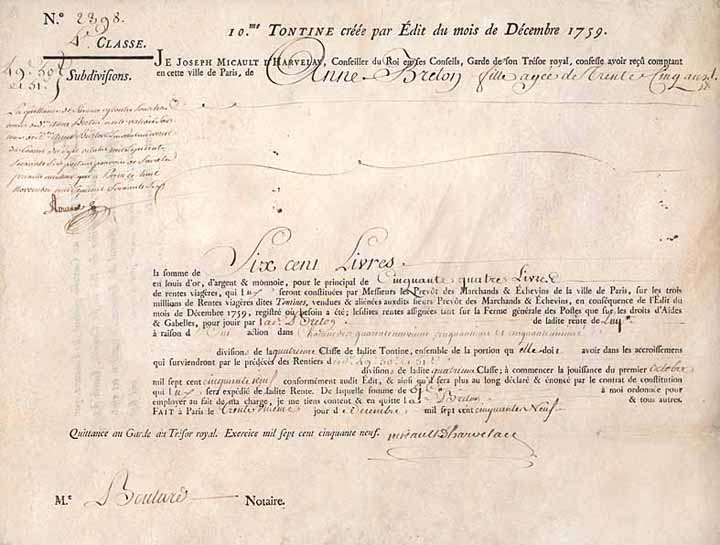 N.º 2398.
10.me TONTINE créée par Édit du mois de Décembre 1759.
4e CLASSE.
49. 50.
et 51.
Subdivisions.
JE JOSEPH MICAULT D'HARVELAY, Conseiller du Roi en ses Conseils, Garde de son Trésor royal, confesse avoir reçû comptant
en cette ville de Paris, de Anne Breton fille agée de trente Cinq ans
La quittance de
de Anne Breton
novembre mil sept cent soixante six
la somme de Six cent Livres
en louis d'or, d'argent & monnoie, pour le principal de Cinquante quatre Livres
de rentes viagères, qui seront constituées par Messieurs les Prevôt des Marchands & Échevins de la ville de Paris, sur les trois
millions de Rentes viagères dites Tontines, vendues & aliénées auxdits sieurs Prevôt des Marchands & Échevins, en conséquence de l'Édit du
mois de Décembre 1759, registré où besoin a été; lesdites rentes assignées tant sur la Ferme générale des Postes que sur les droits d'Aides
& Gabelles, pour jouir par lad. Dlle Breton de ladite rente de
à raison d'une action dans chacune des quarante neuvieme cinquantieme et cinquante unieme
divisions de la quatrieme Classe de ladite Tontine, ensemble de la portion qu'elle doit avoir dans les accroissemens
qui surviendront par le prédécès des Rentiers desd. 49. 50. et 51e
divisions de ladite quatrieme Classe; à commencer la jouissance du premier octobre
mil sept cent cinquante neuf conformément audit Édit, & ainsi qu'il sera plus au long déclaré & énoncé par le contrat de constitution
qui sera expédié de ladite Rente. De laquelle somme de à moi ordonnée pour
employer au fait de ma charge, je me tiens content & en quitte lad. Dlle Breton & tous autres.
FAIT à Paris le trente unieme jour de Decembre mil sept cent cinquante Neuf
Quittance au Garde au Trésor royal. Exercice mil sept cent cinquante neuf. micault Dharvelay
M.e Boulard Notaire.